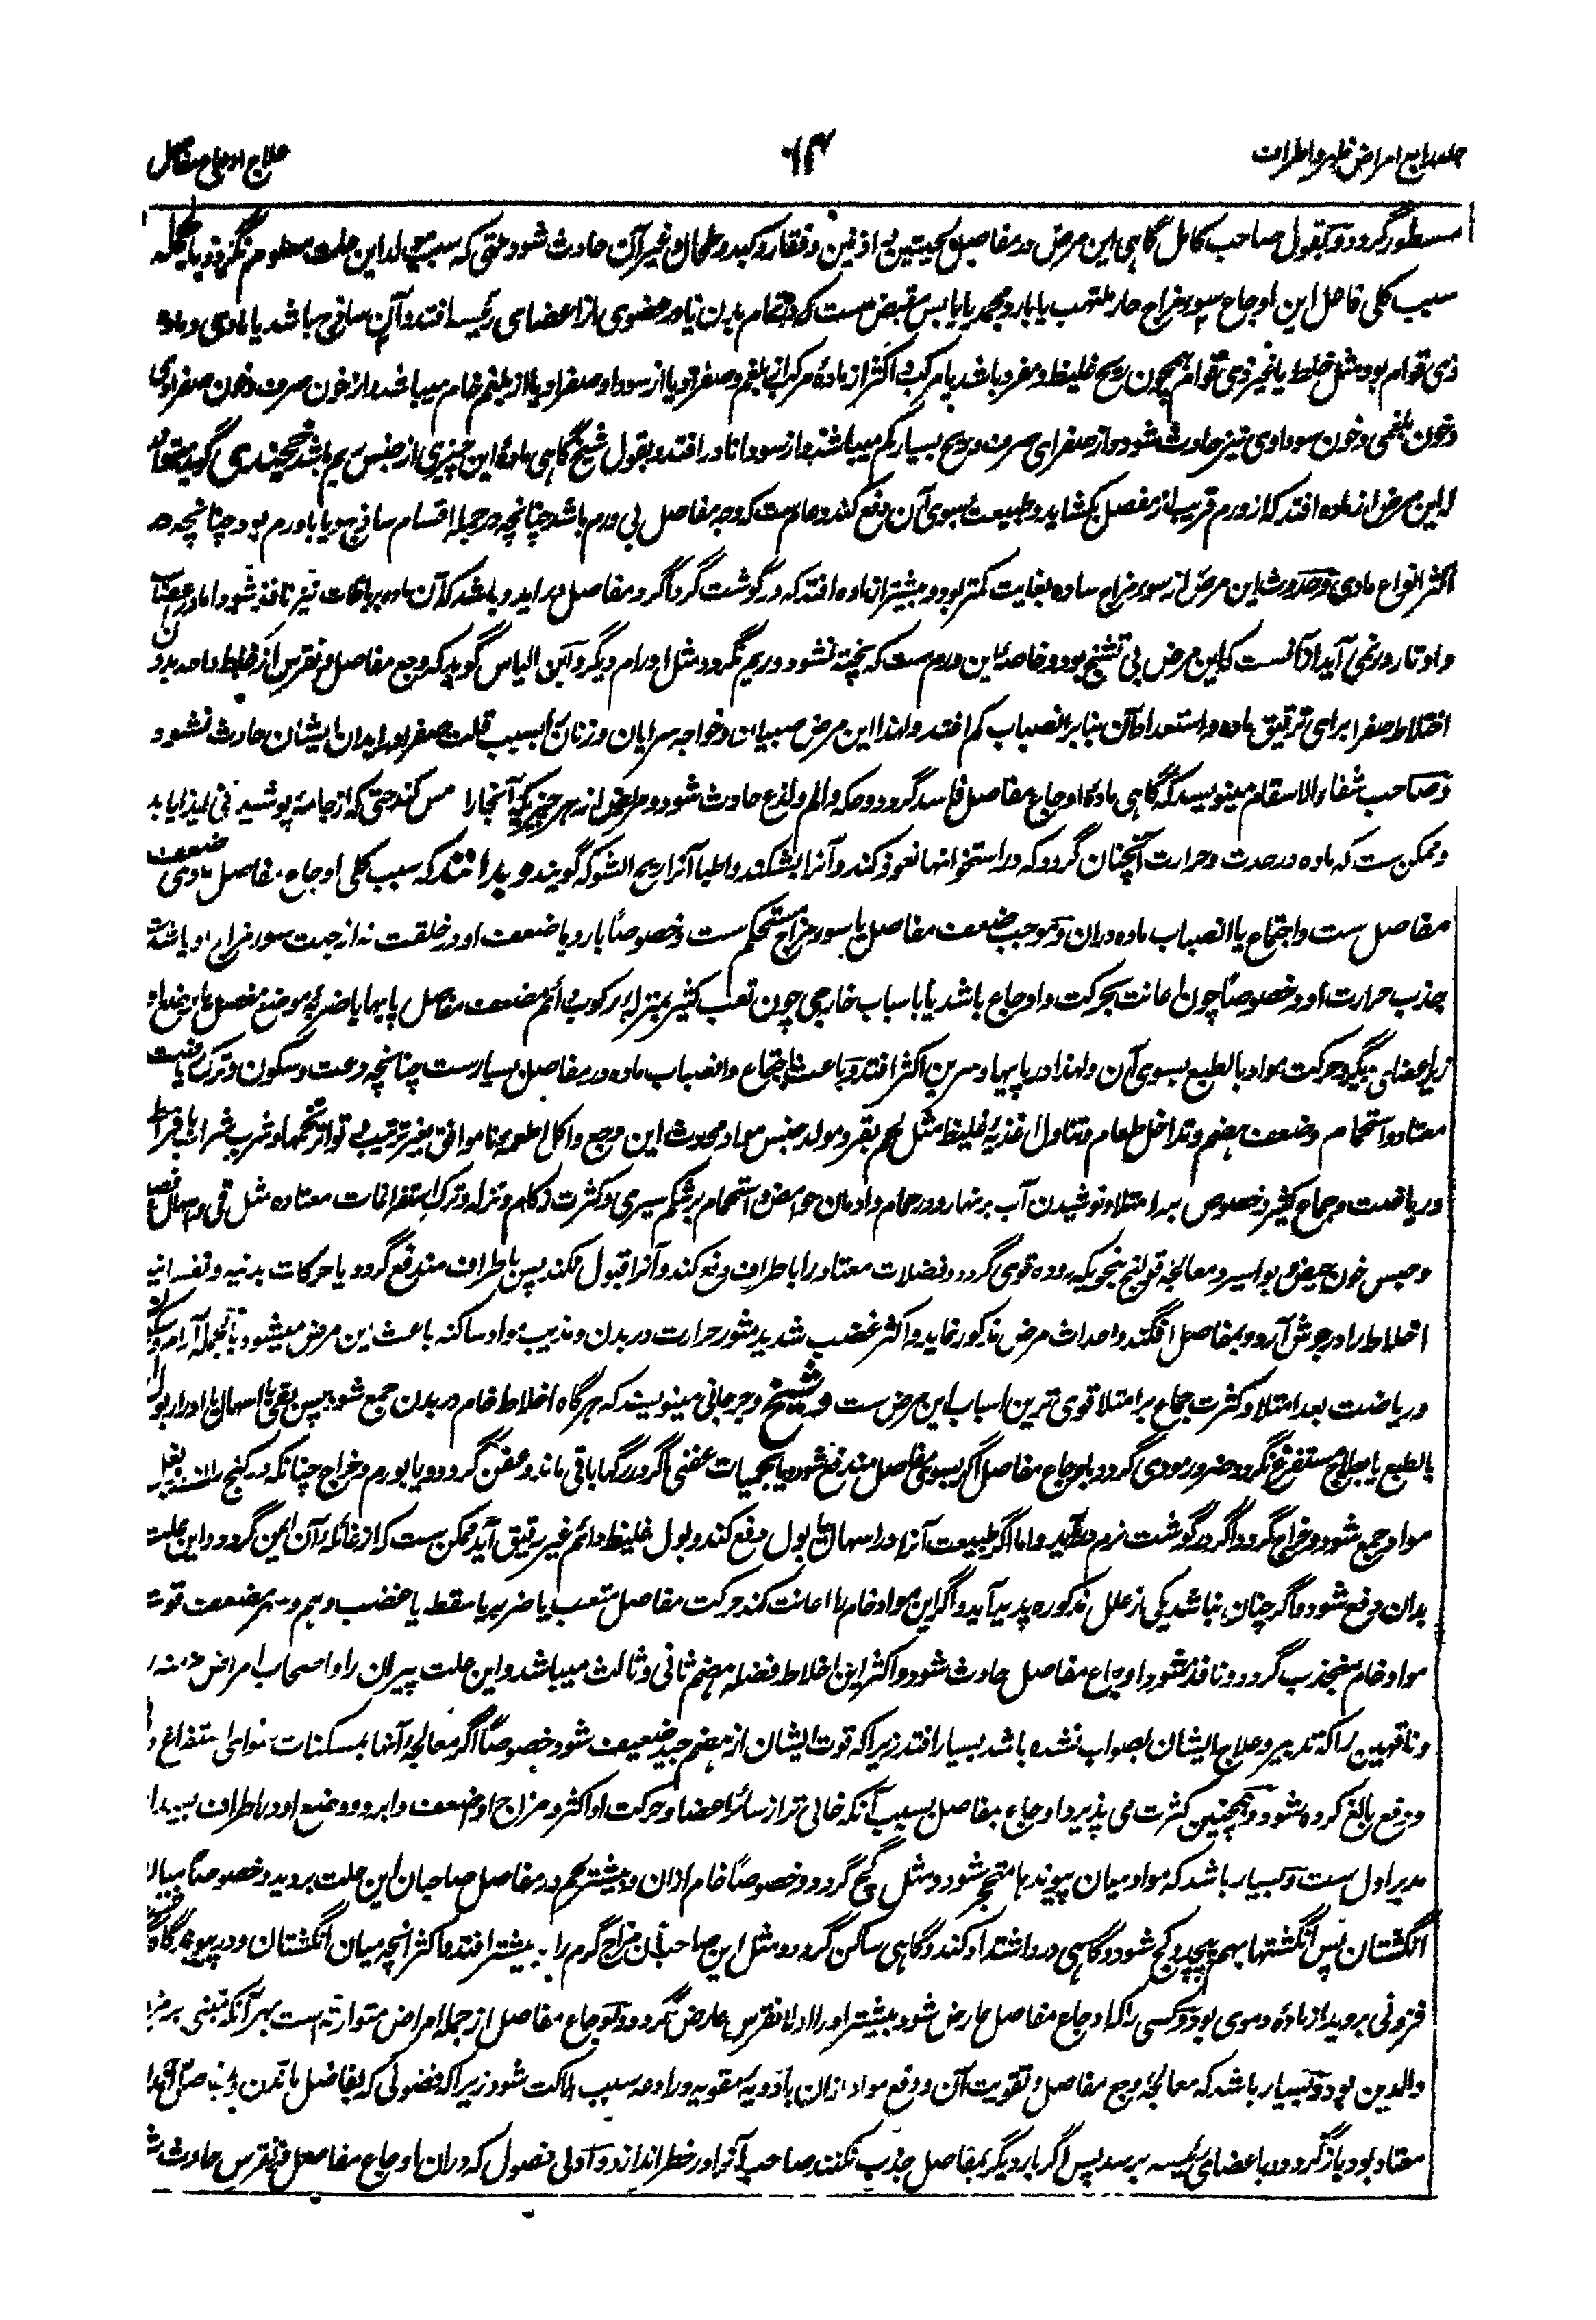 جلد رابع امراض ظهر و اطراف
علاج اوجاع مفاصل
مسطور گردد و بقول صاحب کامل گاهی این مرض در مفاصل لحیتین و اذنین و فقار و کبد و طحال و غیر آن حادث شود حتی که سبب مولد این علت معلوم نگردد و بالجمله
سبب کلی فاعل این اوجاع سوء مزاج حار ملتهب یا بارد مجمد یا یابس مقبض ست که در تمام بدن یا در عضوی از اعضای رئیسه افتد و آن ساذج باشد یا مادی و ماده
ذی قوام بود مثل خلط یا غیر ذی قوام همچون ریح غلیظ و مفرد باشد یا مرکب و اکثر از مادهٔ مرکب از بلغم و صفرا و یا از سودا و صفرا و یا از بلغم خام میباشد و از خون صرف و خون صفراوی
و خون بلغمی و خون سوداوی نیز حادث شود و از صفرای صرف و ریح بسیار کم میباشد و از سودا نادر افتد و بقول شیخ گاهی مادهٔ این چیزی از جنس ریم باشد خجندی گوید
این مرض از ماده افتد که از ورم قریب از مفصل بگشاید و طبیعت بسوی آن دفع کند و عام ست که وجع مفاصل بی ورم باشد چنانچه در جمله اقسام ساذج بود یا با ورم بود چنانچه در
اکثر انواع مادی و حدوث این مرض از سوء مزاج ساده بغایت کمتر بود و بیشتر از ماده افتد که در گوشت گرداگرد مفاصل در آید و باشد که آن ماده برباطات نیز نافذ شود اما در
و اوتار در نمی آید از آنست که این مرض بی تشنج بود و خاصهٔ این ورم ست که پخته نشود و ریم نگردد مثل اورام دیگر و ابن الیاس گوید که وجع مفاصل و نقرس از خلط واحد بدون
اختلاط صفرا برای ترقیق ماده و استعداد آن بنابر انصباب کم افتد و لهذا این مرض صبیان و خواجه سرایان و زنان را بسبب قلت صفرا در ابدان ایشان حادث نشود
و صاحب شفاء الاسقام مینویسد که گاهی مادهٔ اوجاع مفاصل فاسد گردد و حکه و الم و لذع حادث شود و از هر چیزیکه آنجا را مس کند حتی که از جامهٔ پوشیدنی ایذا یابد
و ممکن ست که ماده در حدت و حرارت آنچنان گردد که در استخوانها نفوذ کند و آنرا بشکند و اطبا آنرا ریح الشوکه گویند و بدانند که سبب کلی اوجاع مفاصل مادی ضعف
مفاصل ست و اجتماع یا انصباب ماده دران و موجب ضعف مفاصل یا سوء مزاج مستحکم ست و خصوصاً بارد یا ضعف او در خلقت نه از جهت سوء مزاج او یا شدت
جذب حرارت او و خصوصاً چون اعانت بحرکت و اوجاع باشد یا باسباب خارجی چون تعب کثیر بمنزلهٔ رکوب دائم مضعف مفاصل پایها یا ضربه موضع مفصل یا وضع او
زیر اعضای دیگر و حرکت مواد بالطبع بسوی آن و لهذا در پایها و سرین اکثر افتد و باعث اجتماع و انصباب ماده در مفاصل بسیارست چنانچه دعت و سکون و ترک ریاضت
معتاده استحمام و ضعف هضم و تداخل طعام و تناول اغذیهٔ غلیظ مثل لحم بقر و مولد جنس مواد محدث این وجع و اکل اطعمه ناموافق بغیر ترتیب و تواتر تخمها و شرب شراب بافراط
و ریاضت و جماع کثیر و خصوص بعد امتلا و نوشیدن آب بر نهار و در حمام و ادمان حوامض و استحمام بر شکم سیری و کثرت زکام و نزله و ترک استفراغات معتاده مثل قی و اسهال و فصد
و حبس خون حیض و بواسیر و معالجه قولنج بنحویکه روده قوی گردد و فضلات معتاد را باطراف دفع کند و آنرا قبول نکند پس باطراف مندفع گردد و یا حرکات بدنیه و نفسانیه
اخلاط را در جوش آرد و بمفاصل افگند و احداث مرض مذکور نماید و اکثر غضب شدید مثور حرارت در بدن و مذیب مواد ساکنه باعث این مرض میشود بالجمله آرام و سکون
و ریاضت بعد امتلا و کثرت جماع بر امتلا قوی ترین اسباب این مرض ست و شیخ و جرجانی مینویسند که هرگاه اخلاط خام در بدن جمع شود پس بقی یا اسهال یا ادرار بول
بالطبع یا بعلاج مستفرغ نگردد ضرور مودی گردد باوجاع مفاصل اگر بسوی مفاصل مندفع شود و یا بحمیات عفنی اگر در رگها باقی ماند و عفن گردد و یا بورم و خراج چنانکه در کنج ران و بغل
مواد جمع شود و خراج گردد اگر در گوشت نرم در آید و اما اگر طبیعت آنرا در اسهال یا بول دفع کند و بول غلیظ دائم غیر رقیق آید ممکن ست که از غائله آن ایمن گردد و این علت
بدان دفع شود و اگر چنان نباشد یکی از علل مذکوره پدید آید و اگر این مواد خام را اعانت کند حرکت مفاصل متعب یا ضربه یا سقطه یا غضب و هم و سهر مضعف قوت
مواد خام منجذب گردد و نافذ شود و اوجاع مفاصل حادث شود و اکثر این اخلاط فضله هضم ثانی و ثالث میباشد و این علت پیران را و اصحاب امراض مزمنه را
و ناقهین را که تدبیر و علاج ایشان بصواب نشده باشد بسیار افتد زیرا که قوت ایشان از هضم جید ضعیف شود خصوصاً اگر معالجهٔ آنها بمسکنات سوای استفراغ
و دفع بالغ کرده شود و همچنین کثرت می پذیرد اوجاع مفاصل بسبب آنکه خالی تر از سائر اعضا و حرکت او اکثر و مزاج او ضعف و ابرد و وضع او در اطراف بعید از
مدبر اول ست و بسیار باشد که مواد میان پیوندها متحجر شود و مثل گچ گردد و خصوصاً خام ازان و بیشتر لحم در مفاصل صاحبان این علت بروید و خصوصاً میان
انگشتان پس انگشتها بهم پیچد و کج شود و گاهی درد اشتداد کند و گاهی ساکن گردد و مثل این صاحبان مزاج گرم را بیشتر افتد و اکثر آنچه میان انگشتان و در پیوندگاه
فزونی بروید از مادهٔ دموی بود و کسی را که اوجاع مفاصل عارض شود بیشتر او را اولا نقرس عارض گردد و اوجاع مفاصل از جمله امراض متوارثه است بهر آنکه مبنی بر مزاج
والدین بود و بسیار باشد که معالجهٔ وجع مفاصل و تقویت آن و دفع مواد ازان بادویه مقویه و رادعه سبب هلاکت شود زیرا که فضولی که بمفاصل آمدن
معتاد بود باز گردد و باعضای رئیسه برسد پس اگر بار دیگر بمفاصل جذب نکنند صاحب آنرا در خطر اندازد و اولی فصول که دران اوجاع مفاصل و نقرس حادث